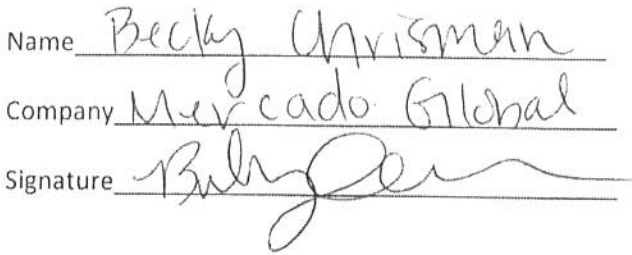 Name Becky Chrisman
Company Mercado Global
Signature